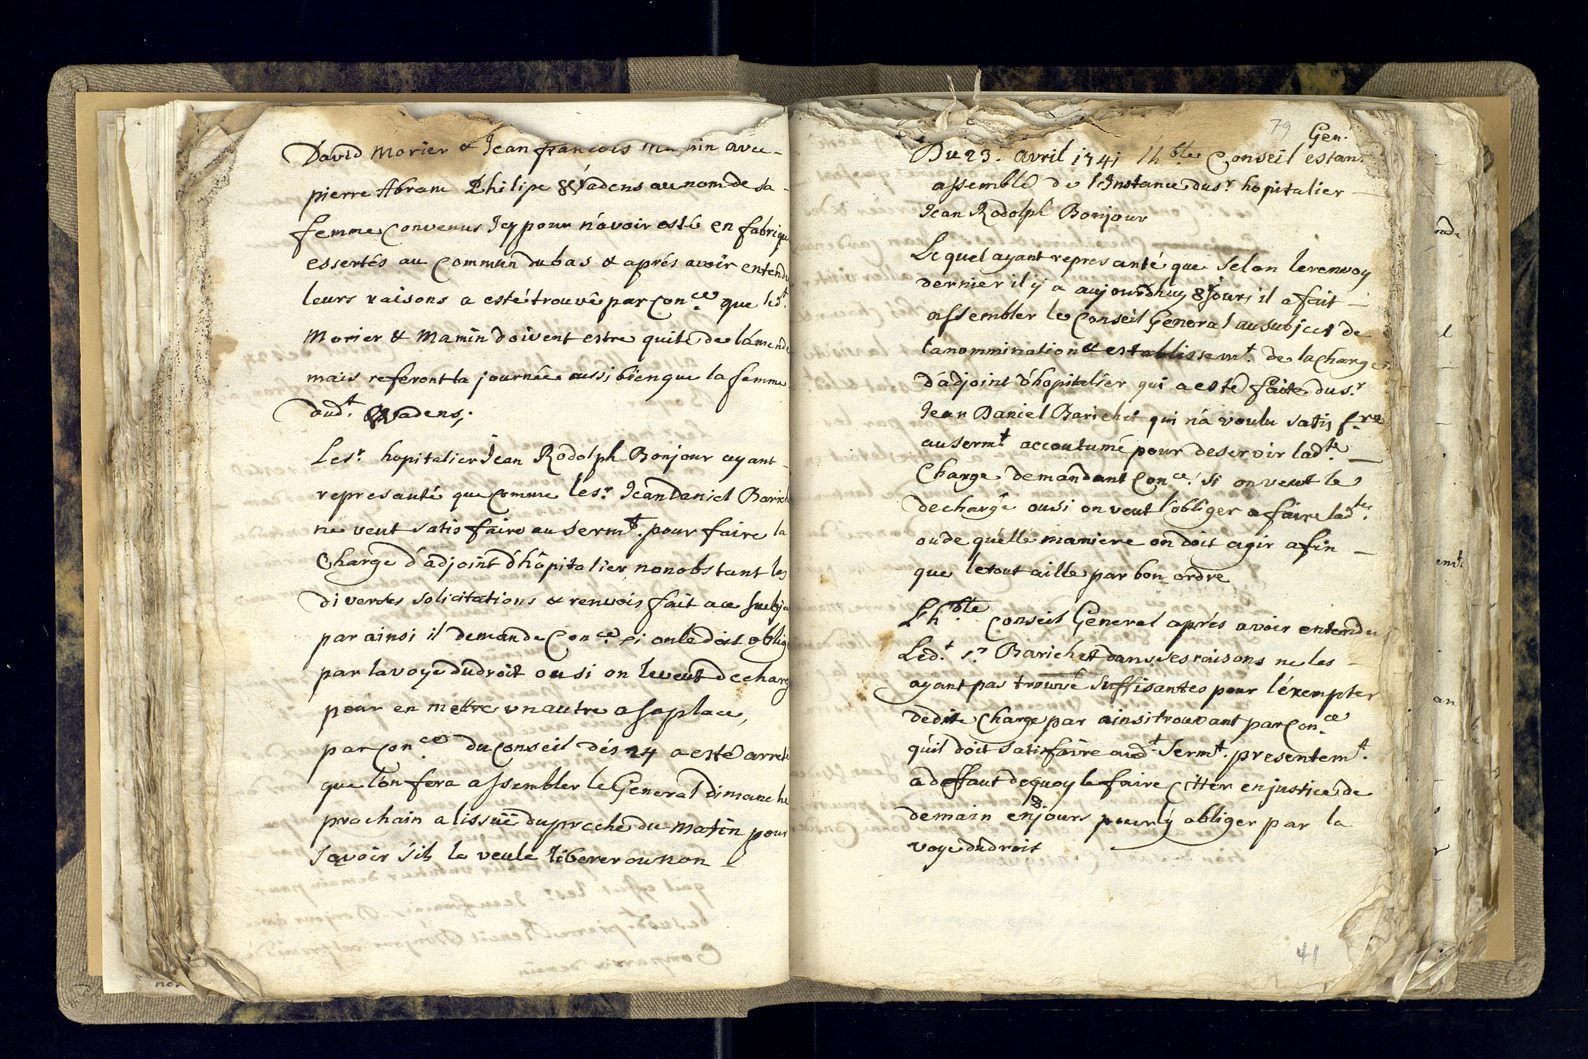 David Morier & Jean francois Mamin avec
pierre Abram Philipe Wadens au nom de sa
femme Convenus Icy pour n'avoir esté en fabrique
essertés au Commun du bas & aprés avoir entendu
leurs raisons a esté trouvé par Con.ce que lesd.t
Morier & Mamin doivent estre quite de lamende
mais referont la journée aussi bien que la femme
dud.t Wadens;
Le s.r hopitalier Jean Rodolph Bonjour ayant
represanté que Comme le s.r Jean Daniel Barich
ne veut satisfaire au serm.t pour faire la
Charge d'adjoint d'hôpitalier, nonobstant les
diverses solicitations & renvois fait a ce subje
par ainsi il demande Con.ce si on le doit oblige
par la voye du droit ou si on le veut decharg
pour en mettre un autre a sa place,
par Con.ce du Conseil des 24 a esté arreté
que l'on fera assembler le General dimanche
prochain a lissuë du preche du matin pour
scavoir s'ils le veule liberer ou non
79
Gen.
Du 23. avril 1741 lh.ble Conseil estan
assemblé de l'Instance du s.r hopitalier
Jean Rodolph Bonjour
Lequel ayant represanté que selon le renvoy
dernier il y a aujourdhuy 8 jours il a fait
assembler le Conseil General au subject de
la nommination & establissem.t de la Charge
d'adjoint d'hopitalier qui a esté faite du s.r
Jean Daniel Barichet qui n'a voulu satisf.re
au serm.t accoutumé pour deservir lad.te
Charge demandant Con.ce si on veut le
decharge ou si on veut l'obliger a faire lad.te
ou de quelle maniere on doit agir afin
que le tout aille par bon ordre
Lh.ble Conseil General aprés avoir entendu
Led.t s.r Barichet dans ses raisons ne les
ayant pas trouvé suffisantes pour l'éxempter
dedite Charge par ainsi trouvant par Con.ce
qu'il doit satisfaire aud.t Serm.t presentem.t
a deffaut dequoy le faire citter en justice de
demain en 8 jours pour ly obliger par la
voye du droit
41